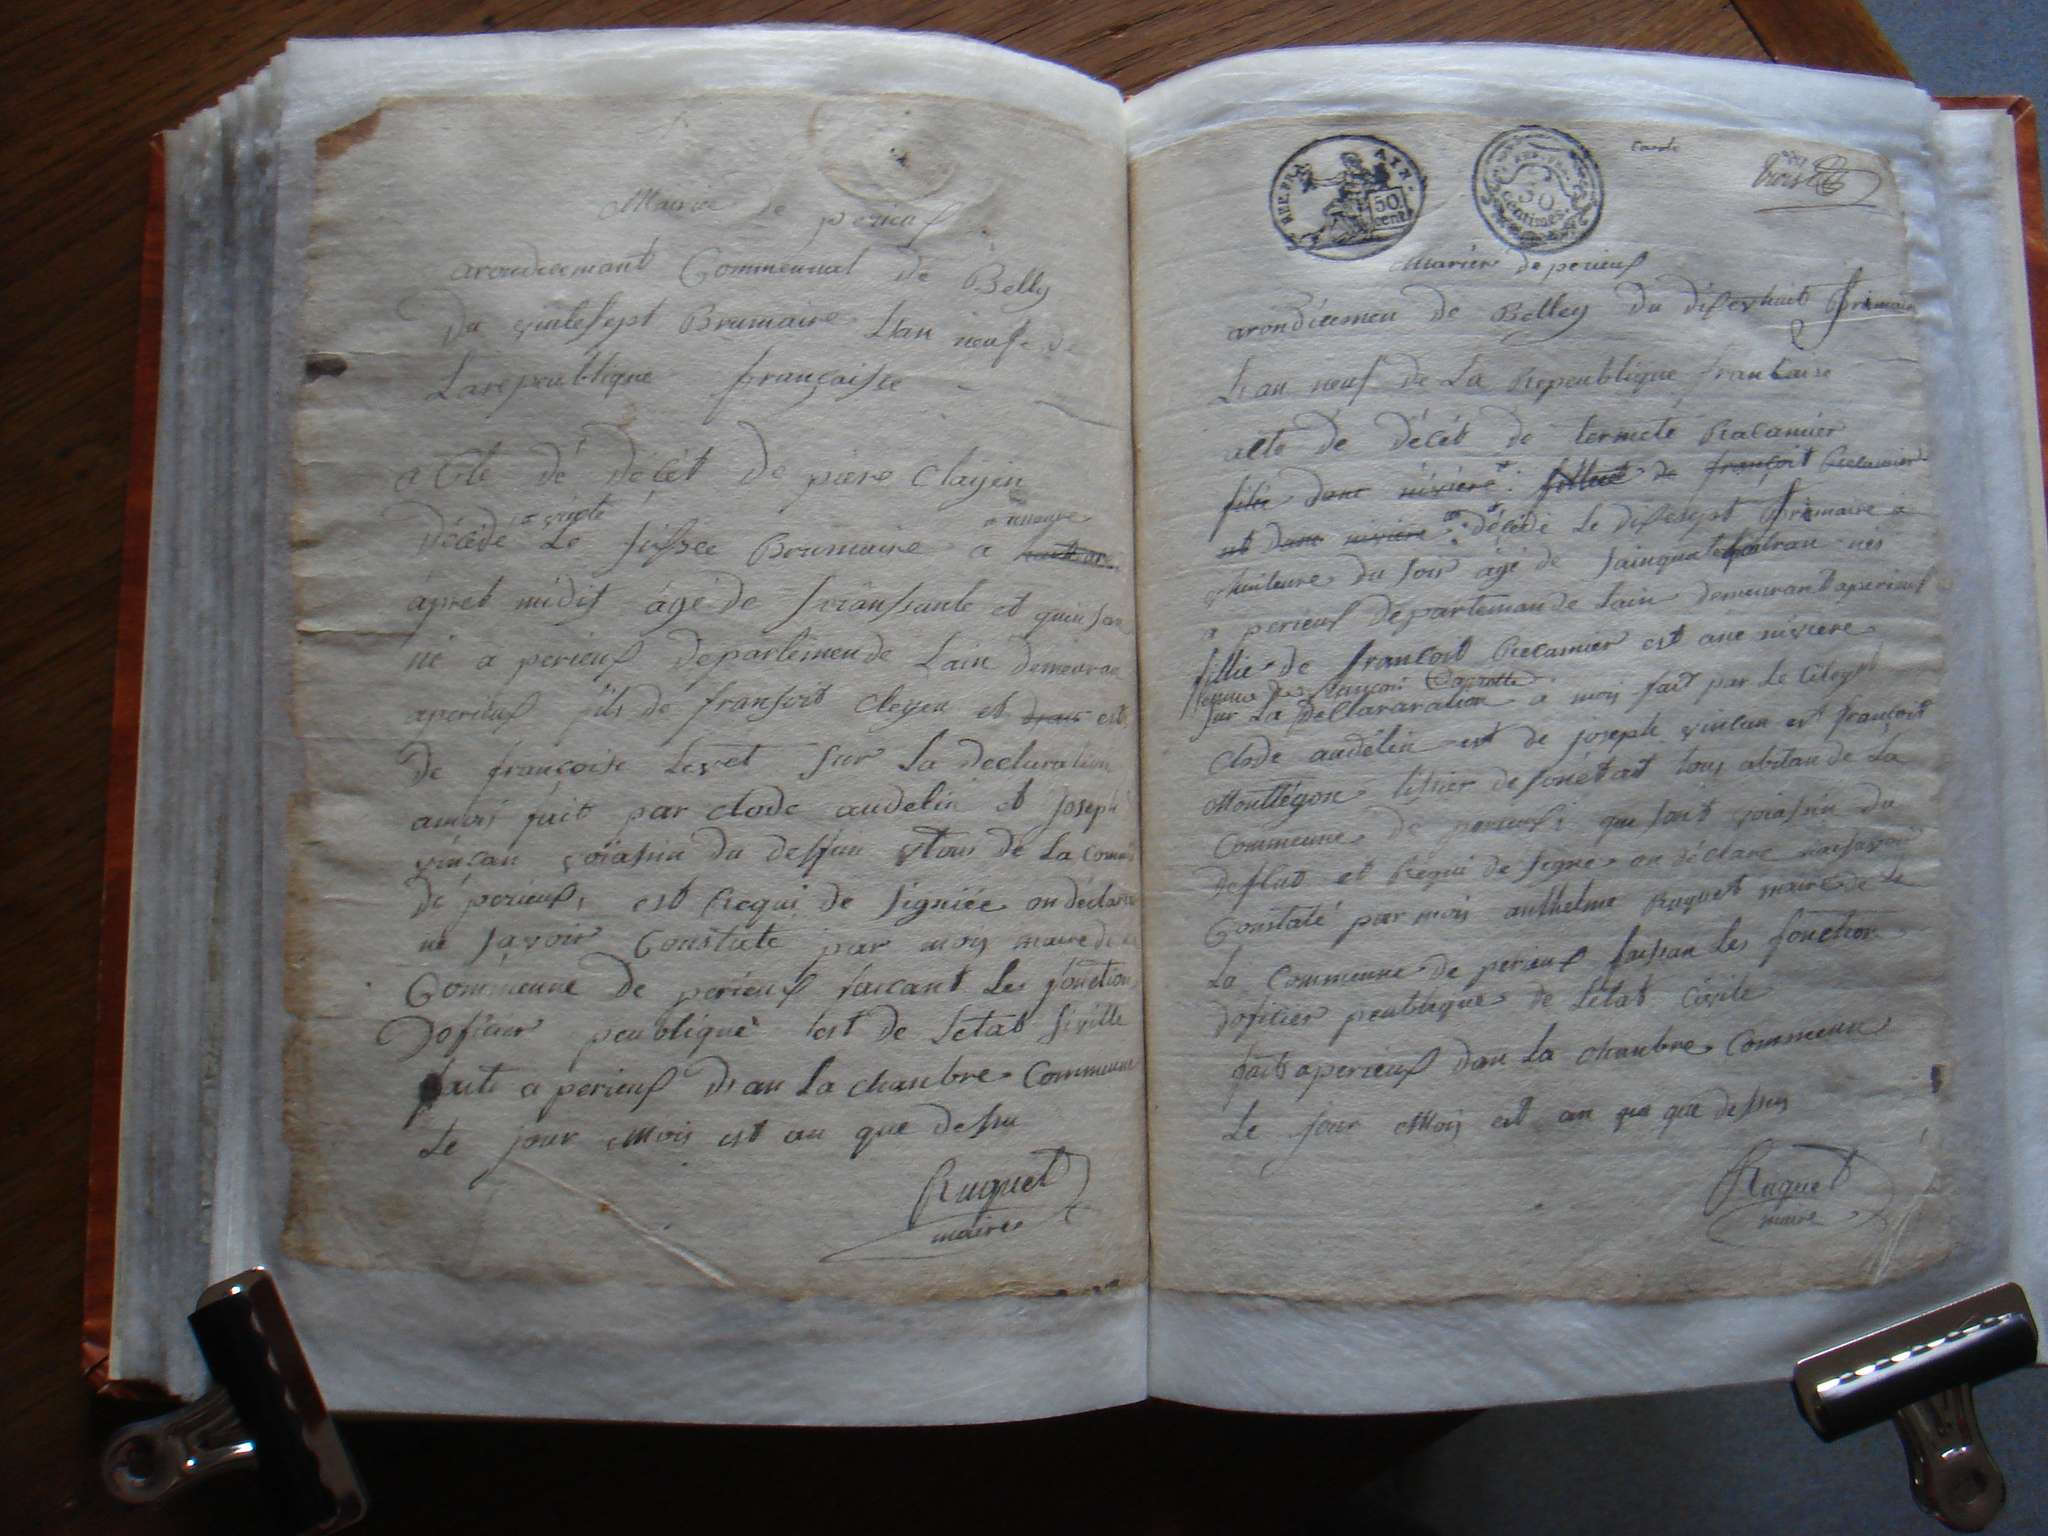 Mairie de perieuf
arondisemant Commeunal de Belly
Du vintesept Brumaire Lan neuf de
La repeublique françaisse
acte dé décét de piere Clayen
vinte a onseure
Décédé Le Brumaire a
âpret midit âgé de soiansante et quinsan
né a perieuf departemende Lain demeuran
aperieuf fils de fransoit Cleyen et est
de françoise Levet sur La declaration
amois fait par clode audelin et Joseph
vinçan voiasin du desfun tous de La comm
de perieuf, est Requi de signiée on déclare
ne savoir Constate par mois maire de la
Commeune de perieuf faicant Les fonction
Dofisier peubliquè est de Letat siville
faite a perieuf dan La chanbre Commeune
Le jour Mois est an que dessu
Ruguet
maire
REP. FRA. AIN.
50 cent.
REP. FRA.
50
Centimes.
trois
Mairier de perieuf
arondicemen de Belley du disevhuit frimaire
Lean neuf de La Repeublique francaise
acte de décét de termete Racamier
fillie dane niviere fillieut de françoit Recamier
et dane niviere décédé Le disesept frimaire a
vhuiteure du soir agé de sainquate an née
a perieuf departeman de Lain demeurant aperieuf
fillie de françoit Recamier est ane niviere
femme de françois
sur La Declararation a mois fait par Le Citoyet
Clode audelin est de joseph vincan est françoit
Montégon tisier de sonétat tous abitan de La
Commeune de perieuf, qui sont voiasin du
desfut et Requi de signe on déclare naisavoir
Constaté par mois anthelme Ruguet maire de Le
La Commeune de perieuf faisan Les fonction
dofisier peublique de Letat Civile
fait aperieuf dan La chanbre Commeune
Le jour Mois est an que que dessus
Ruguet
maire